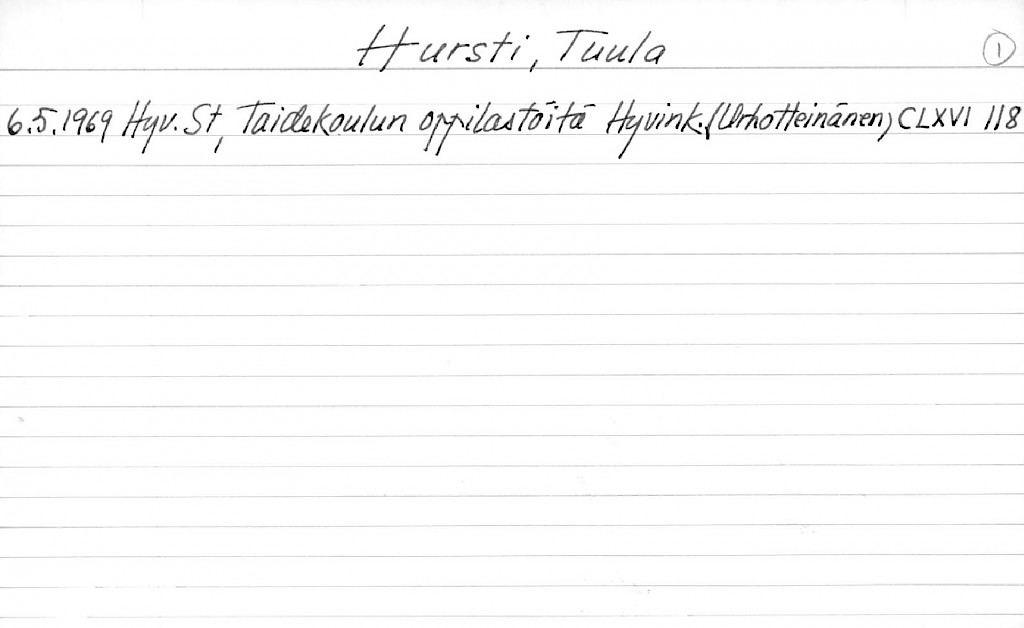 Hursti, Tuula ①
6.5.1969 Hyv. St, Taidekoulun oppilastöitä Hyvink. (UrhoHeinänen) CLXVI 118